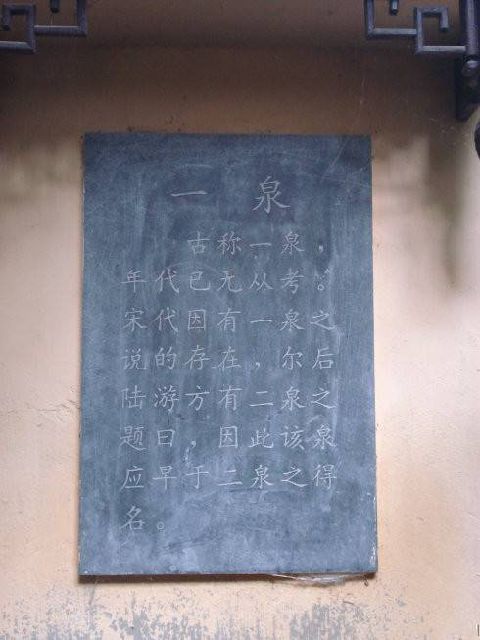 一 泉
古称一泉,
年代已无从考。
宋代因有一泉之
说的存在,尔后
陆游方有二泉之
题曰,因此该泉
应早于二泉之得
名。